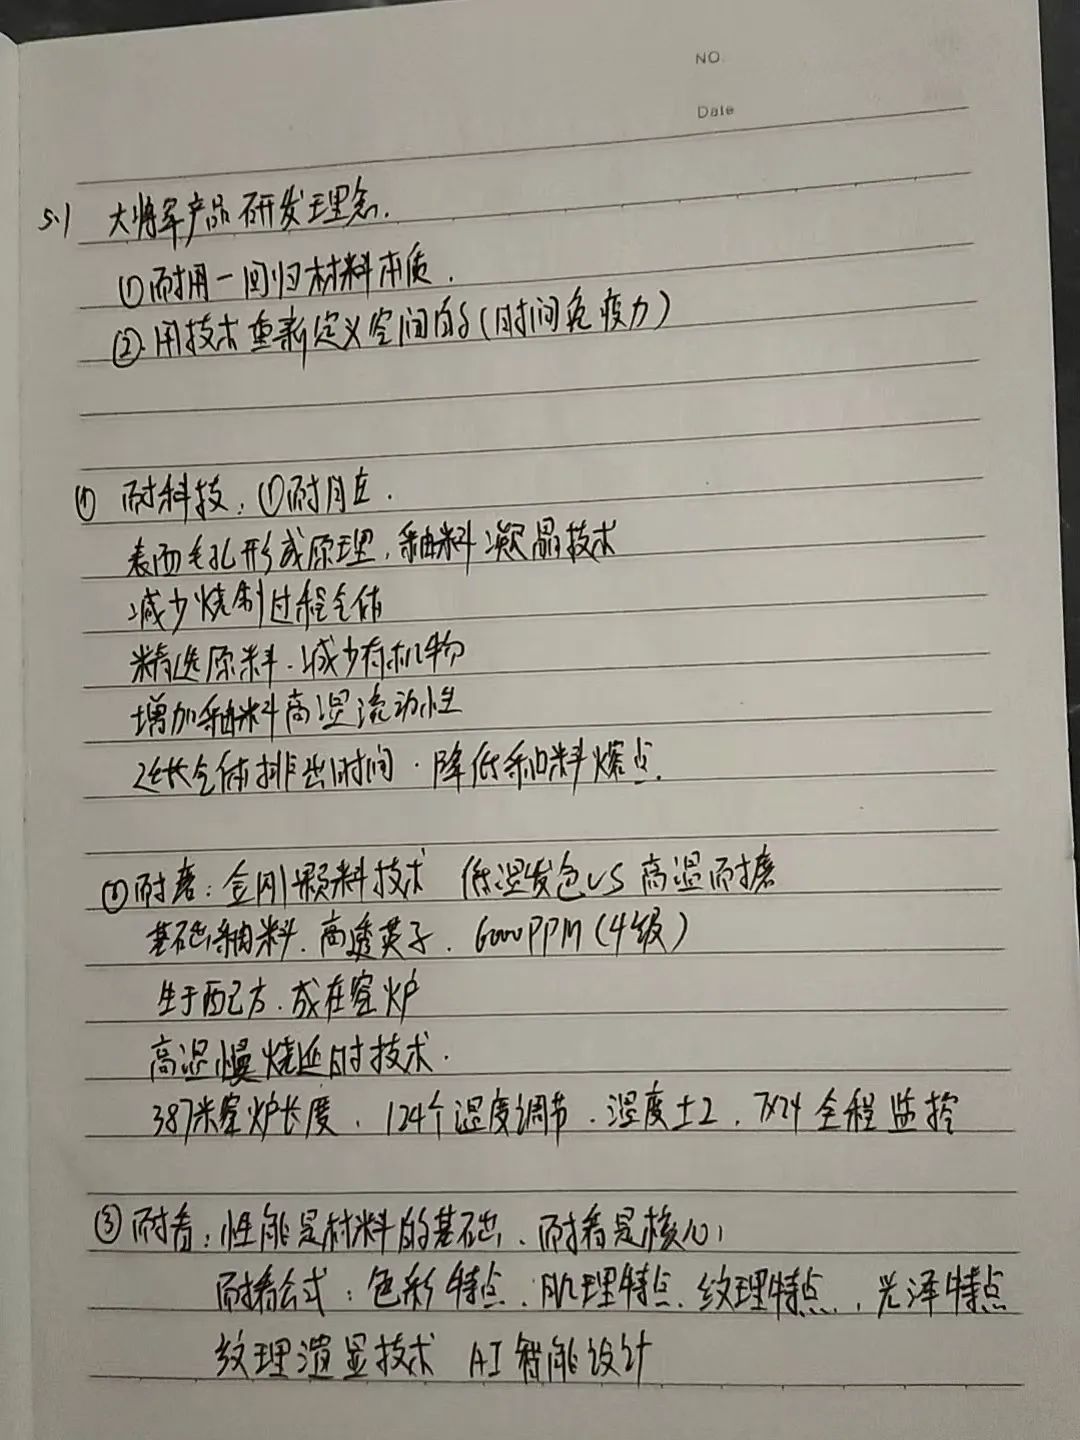 NO.
Date
5.1 大将军产品研发理念.
①耐用一回归材料本质.
②.用技术重新定义空间的(时间免疫力)
① 耐科技:①耐脏.
表面毛孔形成原理.釉料凝晶技术
减少烧制过程气体
精选原料.减少有机物
增加釉料高温流动性
延长气体排出时间.降低釉料熔点.
②耐磨:金刚颗料技术 低温发色VS高温耐磨
基础釉料.高透英子.6000PPM(4级)
生于配方.成在窑炉
高温慢烧延时技术.
387米窑炉长度.124个温度调节.温度±2.7X24全程监控
③耐看:性能是材料的基础.耐看是核心
耐看公式:色彩特点.肌理特点.纹理特点.光泽特点
纹理 显技术 AI智能设计